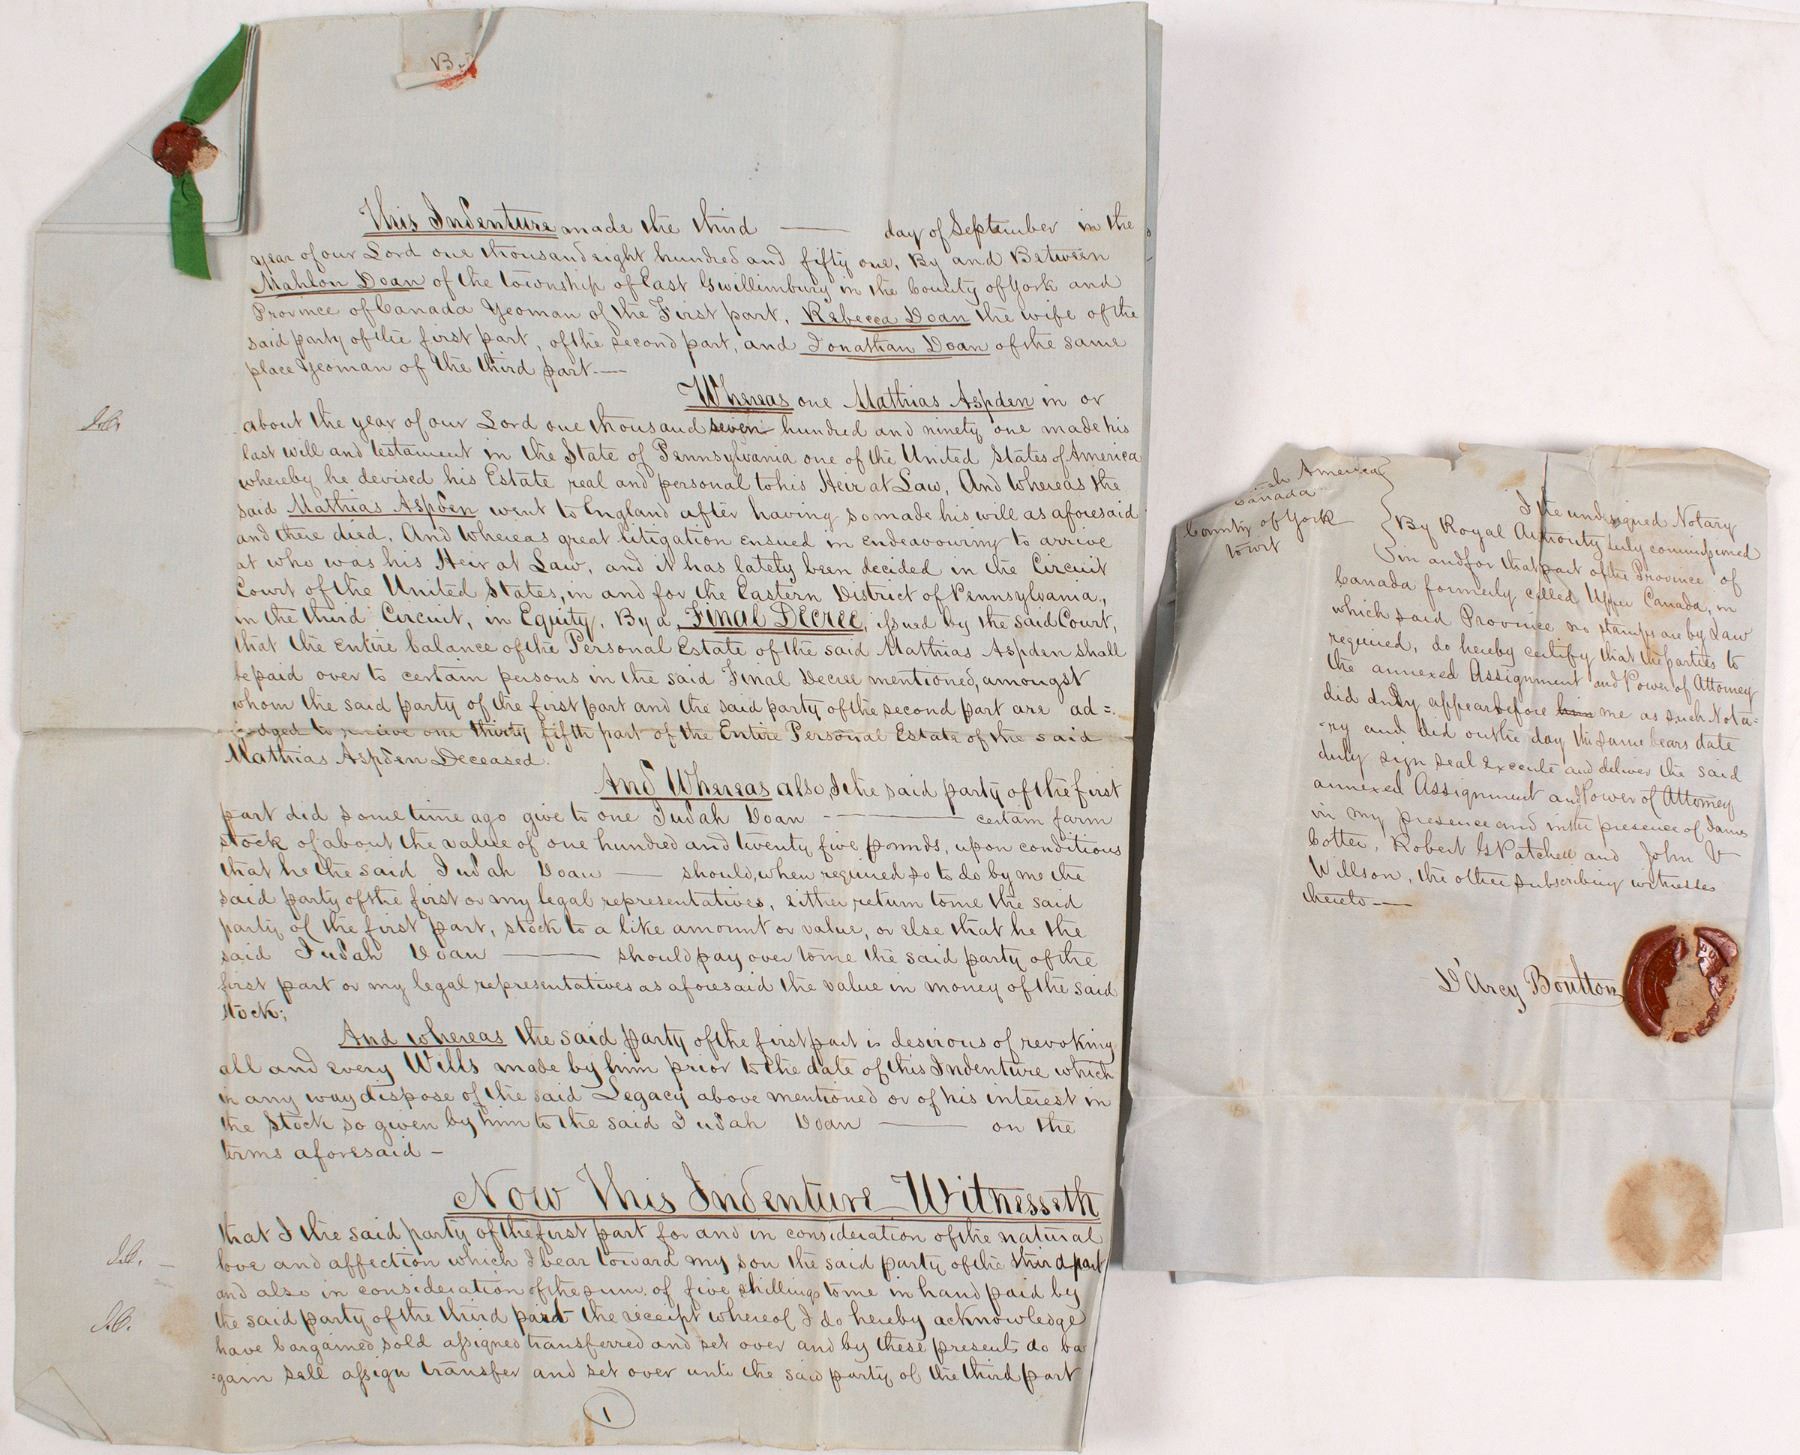 This Indenture made the third — day of September in the
year of our Lord one thousand eight hundred and fifty one, By and Between
Mahlon Doan of the township of East Gwillimbury in the County of York and
Province of Canada Yeoman of the First part, Rebecca Doan the wife of the
said party of the first part, of the second part, and Jonathan Doan of the same
place Yeoman of the third part.—
Whereas one Mathias Aspden in or
about the year of our Lord one thousand seven hundred and ninety one made his
last will and testament in the State of Pennsylvania one of the United States of America
whereby he devised his Estate real and personal to his Heir at Law, And whereas the
said Mathias Aspden went to England after having so made his will as aforesaid
and there died, And whereas great litigation ensued in endeavouring to arrive
at who was his Heir at Law, and it has lately been decided in the Circuit
Court of the United States, in and for the Eastern District of Pennsylvania,
in the third Circuit, in Equity, By a Final Decree, issued by the said Court,
that the entire balance of the Personal Estate of the said Mathias Aspden shall
be paid over to certain persons in the said Final Decree mentioned, amongst
whom the said party of the first part and the said party of the second part are ad=
judged to receive one thirty fifth part of the Entire Personal Estate of the said
Mathias Aspden Deceased.
And Whereas also, I the said party of the first
part did some time ago give to one Judah Doan — certain farm
stock of about the value of one hundred and twenty five pounds, upon conditions
that he the said Judah Doan — should, when required so to do by me the
said party of the first or my legal representatives, either return to me the said
party of the first part, stock to a like amount or value, or else that he the
said Judah Doan — should pay over to me the said party of the
first part or my legal representatives as aforesaid the value in money of the said
stock;
And whereas the said party of the first part is desirous of revoking
all and every Wills made by him prior to the date of this Indenture which
in any way dispose of the said Legacy above mentioned or of his interest in
the Stock so given by him to the said Judah Doan — on the
terms aforesaid –
Now This Indenture Witnesseth
that I the said party of the first part for and in consideration of the natural
love and affection which I bear toward my son the said party of the third part
and also in consideration of the sum of five shillings to me in hand paid by
the said party of the third part the receipt whereof I do hereby acknowledge
have bargained sold assigned transferred and set over and by these presents do ba
=gain sell assign transfer and set over unto the said party of the third part
1
J.C.
J.C.
J.C.
America
Canada
County of York
to wit
I the undersigned Notary
By Royal Authority duly commissioned
in and for that part of the Province of
Canada formerly called Upper Canada, in
which said Province no stamps are by Law
required, do hereby certify that the parties to
the annexed Assignment and Power of Attorney
did duly appear before him me as such Nota=
=ry and did on the day the same bears date
duly sign seal execute and deliver the said
annexed Assignment and Power of Attorney
in my presence and in the presence of James
Cotter, Robert G Patchell and John V
Willson, the other subscribing witnesses
thereto —
D'Arcy Boulton